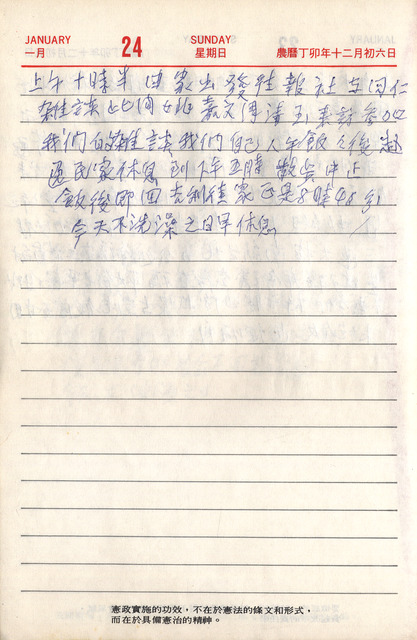 JANUARY
一月
24
SUNDAY
星期日
農曆丁卯年十二月初六日
上午十時半由家出發往報社与同仁
雜談此間
我們的雜談我們自己人午飯之後
民家休息到下午五時
飯後即回吉利住家正是8時45分
今天不洗澡之日早休息
憲政實施的功效，不在於憲法的條文和形式，
而在於具備憲治的精神。